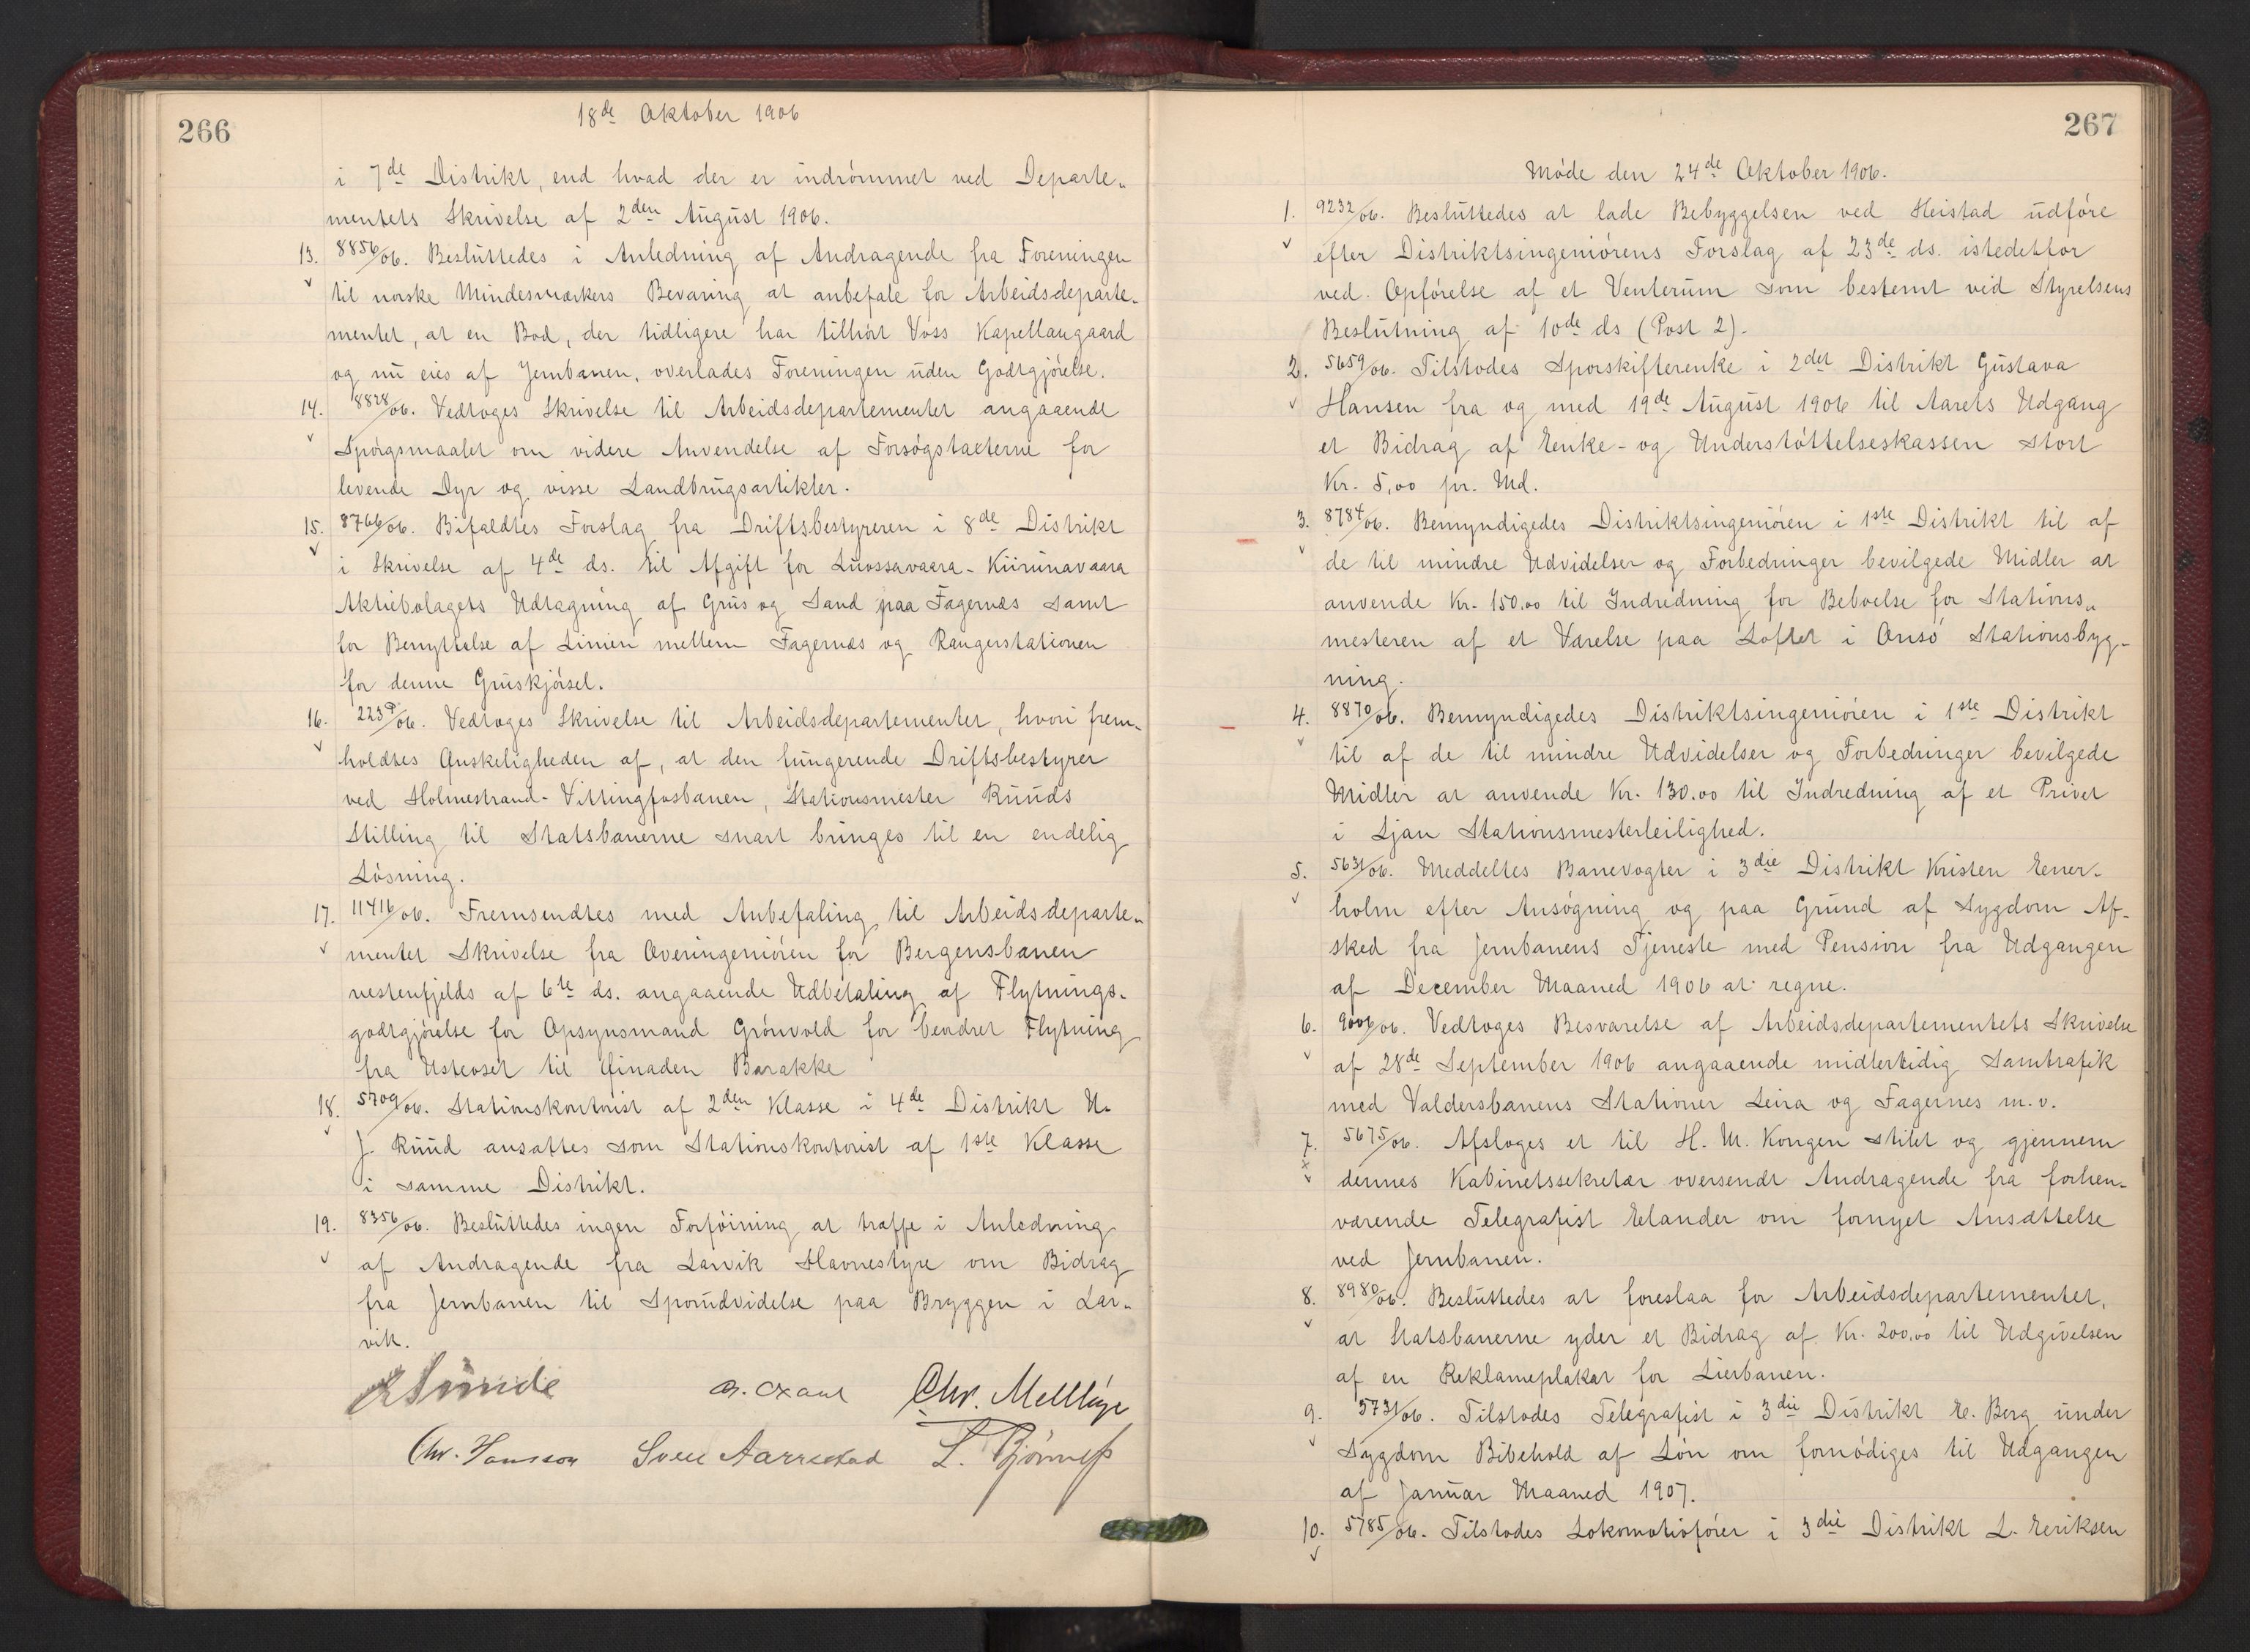 266
18de Oktober 1906
i 7de Distrikt, end hvad der er indrömmet ved Departe„
mentets Skrivelse af 2den August 1906.
13. 8856/06. Besluttedes i Anledning af Andragende fra Foreningen
til norske Mindesmærkers Bevaring at anbefale for Arbeidsdeparte„
mentet, at en Bod, der tidligere har tilhört Voss Kapellangaard
og nu eies af Jernbanen, overlades Foreningen uden Godtgjörelse.
14. 8828/06. Vedtoges Skrivelse til Arbeidsdepartementet angaaende
Spörgsmaalet om videre Anvendelse af Forsögstaxterne for
levende Dyr og visse Landbrugsartikler.
15. 8766/06. Bifaldtes Forslag fra Driftsbestyreren i 8de Distrikt
i Skrivelse af 4de ds. til Afgift for Luossavaara-Kiirunavaara
Aktiebolagets Udtagning af Grus og Sand paa Fagernæs samt
for Benyttelse af Linien mellem Fagernæs og Rangerstationen
for denne Gruskjörsel.
16. 223P/06. Vedtoges Skrivelse til Arbeidsdepartementet, hvori frem„
holdtes Ønskeligheden af, at den fungerende Driftsbestyrer
ved Holmestrand-Vittingfosbanen, Stationsmester Ruuds
Stilling til Statsbanerne snart bringes til en endelig
Lösning.
17. 11416/06. Fremsendtes med Anbefaling til Arbeidsdeparte„
mentet Skrivelse fra Overingeniören for Bergensbanen
vestenfjelds af 6te ds. angaaende Udbetaling af Flytnings-
godtgjörelse for Opsynsmand Grönvold for beordret Flytning
fra Usteoset til Barakke
18. 5709/06. Stationskontorist af 2den Klasse i 4de Distrikt
J. Ruud ansattes som Stationskontorist af 1ste Klasse
i samme Distrikt.
19. 8356/06. Besluttedes ingen Forföining at træffe i Anledning
af Andragende fra Larvik Havnestyre om Bidrag
fra Jernbanen til Sporudvidelse paa Bryggen i Lar„
vik.
Chr. Mellbye
Chr. Hansson Sven Aarrestad
267
Möde den 24de Oktober 1906.
1. 9232/06. Besluttedes at lade Bebyggelsen ved Heistad udföre
efter Distriktsingeniörens Forslag af 23de ds. istedetfor
ved Opförelse af et Venterum som bestemt ved Styrelsens
Beslutning af 10de ds (Post 2).
2. 5659/06. Tilstodes Sporskifterenke i 2det Distrikt Gustava
Hansen fra og med 19de August 1906 til Aarets Udgang
et Bidrag af Enke- og Understöttelseskassen stort
Kr. 5,00 pr. Md.
3. 8784/06. Bemyndigedes Distriktsingeniören i 1ste Distrikt til af
de til mindre Udvidelser og Forbedringer bevilgede Midler at
anvende Kr. 150.00 til Indredning for Beboelse for Stations„
mesteren af et Værelse paa Loftet i Onsö Stationsbyg-
ning.
4. 8870/06. Bemyndigedes Distriktsingeniören i 1ste Distrikt
til af de til mindre Udvidelser og Forbedringer bevilgede
Midler at anvende Kr. 130.00 til Indredning af et Privet
i Ljan Stationsmesterleilighed.
5. 5631/06. Meddeltes Banevogter i 3die Distrikt Kristen Ener-
holm efter Ansögning og paa Grund af Sygdom Af-
sked fra Jernbanens Tjeneste med Pension fra Udgangen
af December Maaned 1906 at regne.
6. 9006/06. Vedtoges Besvarelse af Arbeidsdepartementets Skrivelse
af 28de September 1906 angaaende midlertidig Samtrafik
med Valdersbanens Stationer Leira og Fagernes m.v.
7. 5675/06. Afsloges et til H. M. Kongen stilet og gjennem
dennes Kabinetssekretær oversendt Andragende fra forhen-
værende Telegrafist Elander om fornyet Ansættelse
ved Jernbanen.
8. 8980/06. Besluttedes at foreslaa for Arbeidsdepartementet,
at Statsbanerne yder et Bidrag af Kr. 200.00 til Udgivelsen
af en Reklameplakat for Lierbanen.
9. 5731/06. Tilstodes Telegrafist i 3die Distrikt E. Berg under
Sygdom Bibehold af Lön om fornödiges til Udgangen
af Januar Maaned 1907.
10. 5785/06. Tilstodes Lokomotivförer i 3die Distrikt L. Eriksen